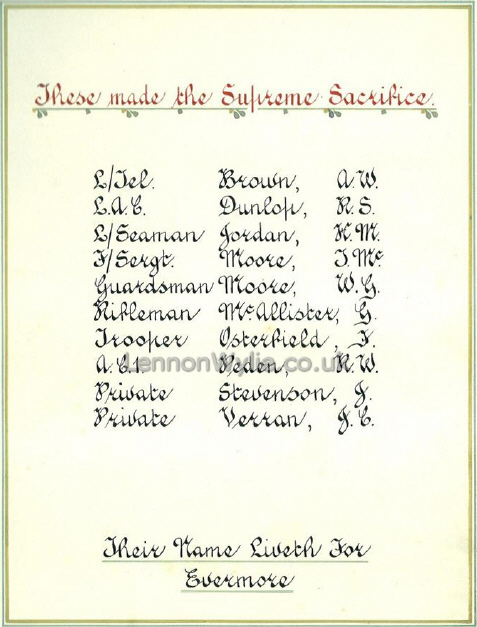 These made the Supreme Sacrifice.
L/Tel. Brown, A.W.
L.A.C. Dunlop, R.S.
L/Seaman Jordan, H.M.
F/Sergt. Moore, J.Mc.
Guardsman Moore, W.G.
Rifleman McAllister, G.
Trooper Osterfield, F.
A.C.1 Peden, R.W.
LennonWylie.co.uk
Private Stevenson, J.
Private Verran, J.C.
Their Name Liveth For
Evermore